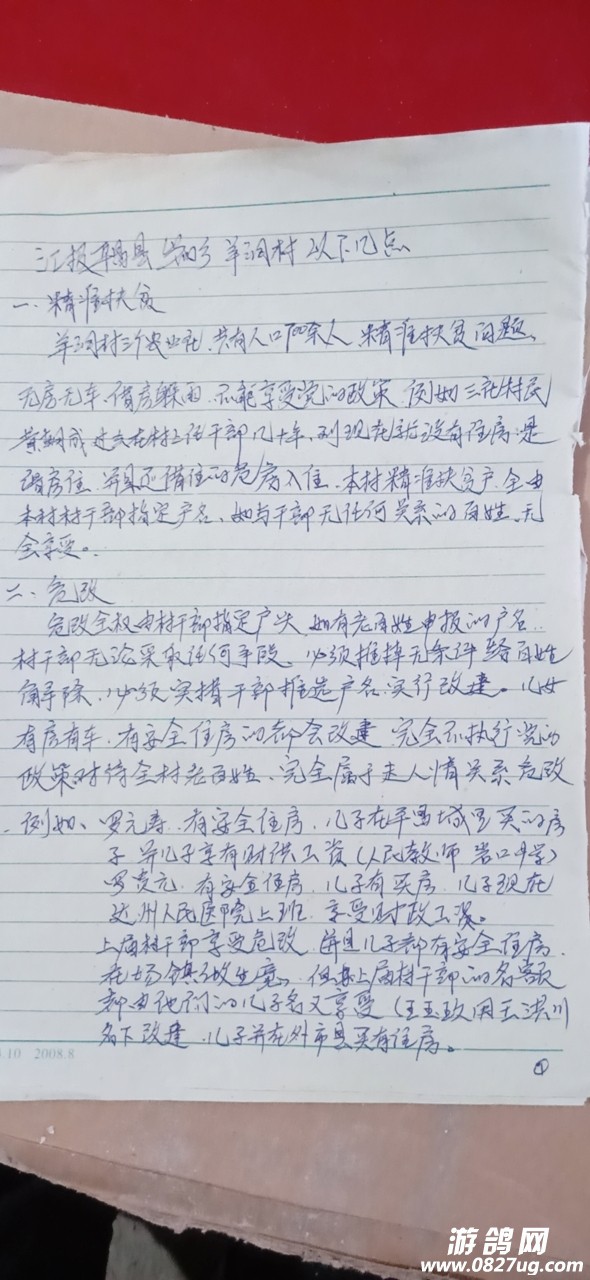 汇报平昌县 乡 羊洞村 以下几点
一、精准扶贫
羊洞村三个农业社,共有人口700余人,精准扶贫问题、
无房无车、借房躲雨、不能享受党的政策,例如三社村民
黄 成过去在村上任干部几十年,到现在就没有住房,是
借房住,并且还借住的危房入住,本村精准扶贫户,全由
本村村干部指定户名、如与干部无任何关系的百姓、无
全享受。
二、危改
危改全权由村干部指定户头,如有老百姓申报的户名,
村干部无论采取任何手段,必须推掉无条件给百姓
解除,必须实措干部推选户名实行改建。儿女
有房有车,有安全住房的都会改建,完全不执行党的
政策对待全村老百姓、完全属于走人情关系危改
例如、罗元寿,有安全住房,儿子在平昌城里买的房
子并儿子享有财供工资(人民教师 岩口中学)
罗 元,有安全住房,儿子有买房,儿子现在
达州人民医院上班,享受财政工资。
上届村干部享受危改,并且儿子都有安全住房,
在场镇做生意,但是上届村干部的名额
都由他们的儿子名义享受(王玉政用王洪川
名下改建,儿子并在外市县买有住房。
10 2008.8
①
游鸽网
www.0827ug.com